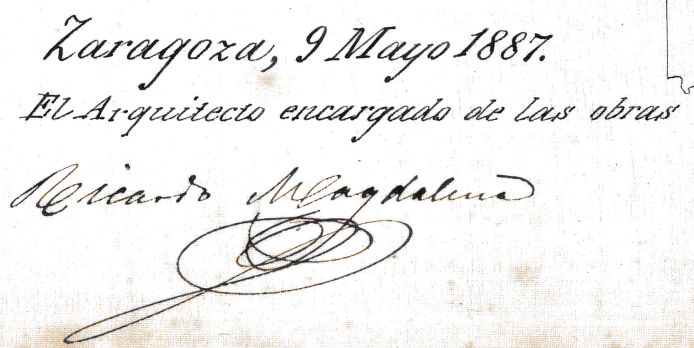 Zaragoza, 9 Mayo 1887.
El Arquitecto encargado de las obras
Ricardo Magdalena